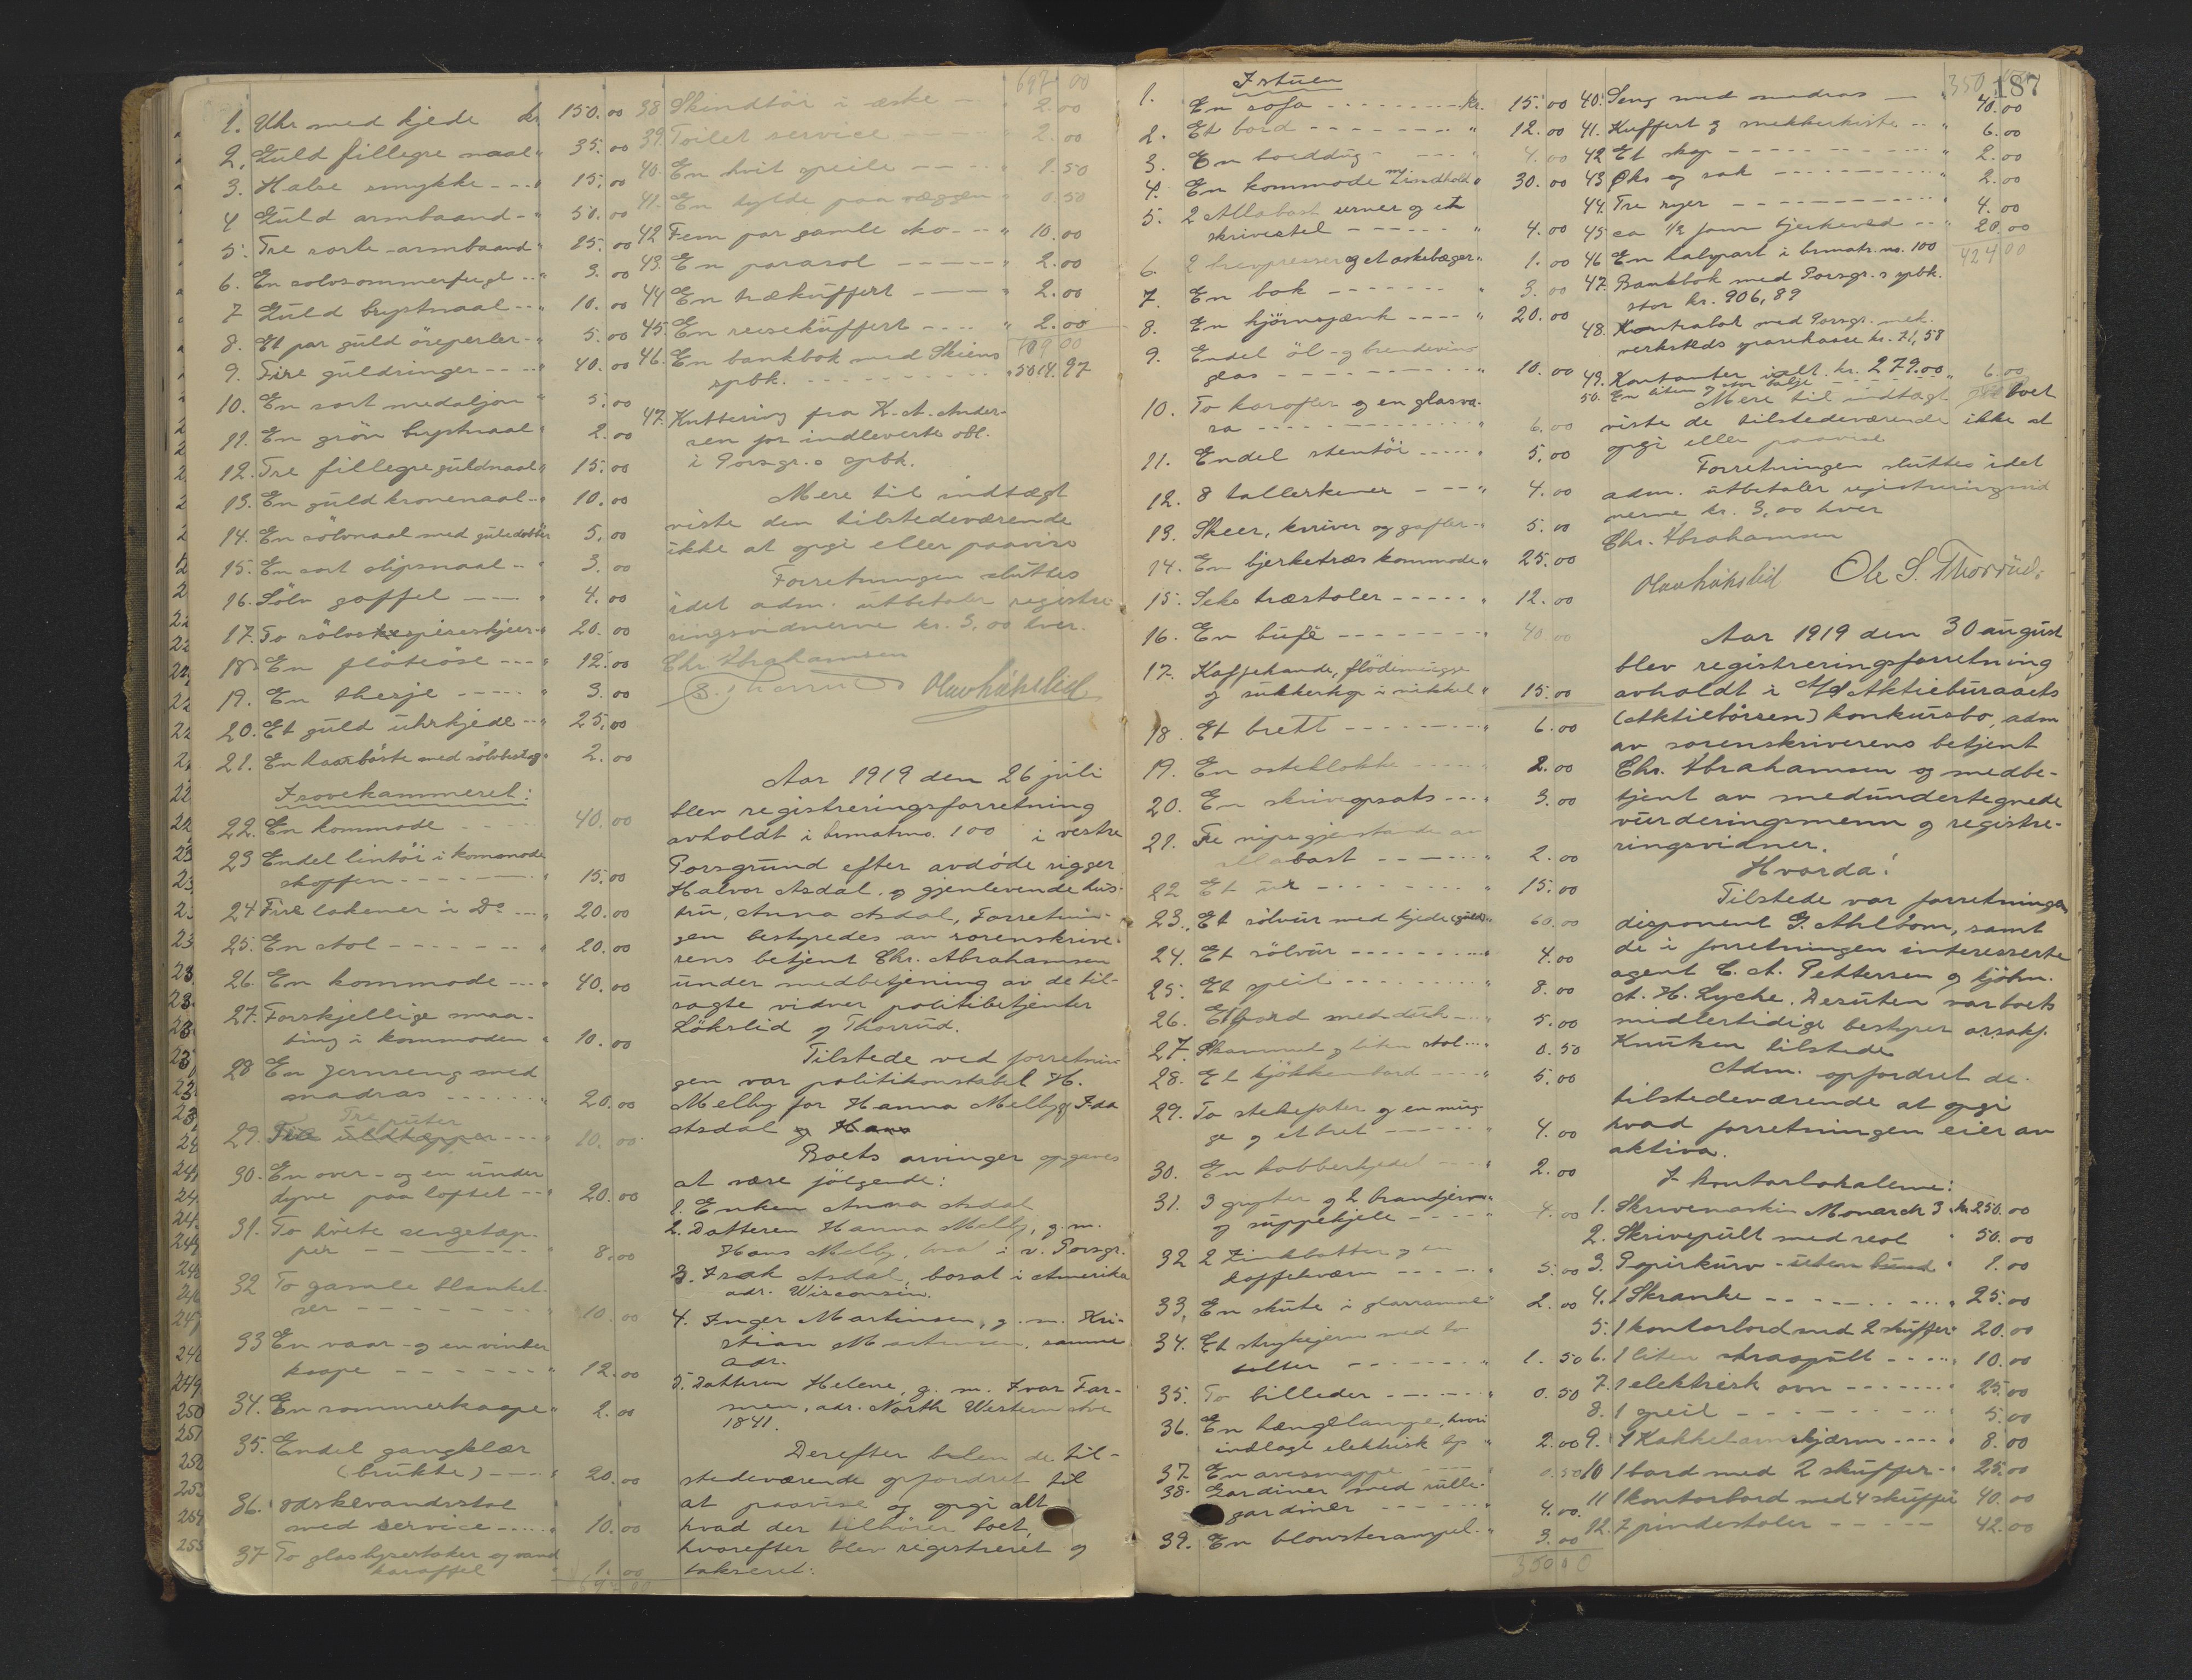 1. Uhr med kjede kr. 150.00
2. Guld fillegre naal " 35.00
3. Halse smykke - - - " 15.00
4 Guld armbaand - " 50.00
5. Tre sorte armbaand " 25.00
6. En solvsommerfugl - - " 3.00
7 Guld brystnaal - - - " 10.00
8. Et par guld öreperler - " 5.00
9. Fire guldringer - - - - " 40.00
10. En sort medaljon " 5.00
11. En grön brystnaal " 2.00
12. Tre fillegre guldnaal " 15.00
13. En guld kronenaal - " 10.00
14. En sölvnaal med gulddobber 5.00
15. En sort slipsnaal - - " 3.00
16. Sölv gaffel - - - - " 4.00
17. To sölv spiseskjeer - " 20.00
18. En flöteöse - - - " 12.00
19. En theskje - - - - " 3.00
20. Et guld uhrkjede - - " 25.00
21. En haarbörste med sölvbeslag " 2.00
I sovekammeret:
22. En kommode - - - 40.00
23 Endel lintöi i kommode
skoffen - - - - - " 15.00
24 Fire lakener i Do - - - " 20.00
25. En stol - - - - - - " 20.00
26. En kommode - - - " 40.00
27. Forskjellige smaa-
ting i kommoden " 10.00
28 En jernseng med
madras - - - - - - " 20.00
Tre puter
29. Fire uldtæpper - - - " 10.00
30. En over- og en under
dyne paa loftet - - " 20.00
31. To hvite sengetæp-
per - - - - - " 8.00
32 To gamle blanket-
ser - - - - - - " 10.00
33 En vaar- og en vinter
kaape - - - - - " 12.00
34. En sommerkaape " 2.00
35. Endel gangklær
(brukte) - - - - " 20.00
36. Vaskevandsstol
med service - - - - " 10.00
37 To glas lysestaker og vand
karaffel " 1.00
697 00
697 00
38 Skindtöi i æske - - " 2.00
39. Toilet service - - - " 2.00
40. En hvit speile - - - - " 1.50
41. En hylde paa væggen " 0.50
42 Fem par gamle sko - - " 10.00
43. En parasol - - - - - " 2.00
44 En trækuffert - - - - " 2.00
45. En reisekuffert - - - - " 2.00
709 00
46. En bankbok med Skiens
spbk. - - - - - - - - - " 5014.97
47. Kvittering fra K. A. Ander-
sen for indleverte obl.
i Porsgr.s spbk.
Mere til indtægt
viste den tilstedeværende
ikke at opgi eller paavise
Forretningen sluttes
idet adm. utbetaler registre-
ringsvidnerne kr. 3,00 hver.
Chr. Abrahamsen
S. Thorrud Olav Lökslid
Aar 1919 den 26 juli
blev registreringsforretning
avholdt i brmatrno. 100 i vestre
Porsgrund efter avdöde rigger
Halvor Asdal og gjenlevende hus-
tru, Anna Asdal. Forretnin-
gen bestyredes av sorenskrive-
rens betjent Chr. Abrahamsen
under medbetjening av de til-
sagte vidner politibetjenter
Lökslid og Thorrud.
Tilstede ved forretnin-
gen var politikonstabel H.
Melby for Hanna Melby og Ida
Asdal og Hans
Boets arvinger opgaves
at være fölgende:
1. Enken Anna Asdal
2. Datteren Hanna Melby, g. m.
Hans Melby, bosat i v. Porsgr.
3. Isak Asdal, bosat i Amerika
adr. Wisconsin.
4. Inger Martinsen, g. m. Kri-
stian Martinsen, samme
adr.
5. Datteren Helene, g. m. Ivar Far-
men, adr. North Western Ave
1841.
Derefter blev de til-
stedeværende opfordret til
at paavise og opgi alt
hvad der tilhörer boet,
hvorefter blev registreret og
taksert:
I stuen
1. En sofa - - - - - - - - kr. 15.00
2. Et bord - - - - - - - - " 12.00
3. En bordduk - - - - " 4.00
4. En kommode m/ indhold " 30.00
5. 2 Allabast urner og et
skrivestel - - - - - - " 4.00
6. 2 brevpresser og et askebæger " 1.00
7. En bok - - - - - - - " 3.00
8. En hjörnsjænk - - - - " 20.00
9. Endel öl- og brendevins
glas - - - - - - - - - " 10.00
10. To karafler og en glasva-
sa - - - - - - - - - - " 6.00
11. Endel stentöi - - - - - " 5.00
12. 8 tallerkener - - - - " 4.00
13. Skeer, kniver og gafler - " 5.00
14. En bjerketræs kommode " 25.00
15. Seks træstoler - - - - - " 12.00
16. En bufé - - - - - - - - " 40.00
17. Kaffekande, flödemugge
og sukkerkop i nikkel " 15.00
18. Et brett - - - - - - - - " 6.00
19. En osteklokke - - - - - 2.00
20. En skriveopsats - - - " 3.00
21. Tre nipsgjenstande av
allabast - - - - - - " 2.00
22 Et ur - - - - - - - - " 15.00
23. Et sölvur med kjede (guld) " 60.00
24. Et sölvur - - - - - - - - " 4.00
25. Et speil - - - - - - - - " 8.00
26. Et bord med duk - - " 5.00
27. Skammel og liten stol - - " 0.50
28. Et kjökkenbord - - - - " 5.00
29. To stekefater og en mug-
ge og et bret - - - - - " 4.00
30. En kobberkjedel - - - " 2.00
31. 3 gryter og 2 brandjern
og suppekjele - - - - " 4.00
32 2 Zinkbøtter og en
kaffekværn - - - - - " 5.00
33. En skute i glasramme " 2.00
34. Et strykejern med to
bolter - - - - - - " 1.50
35. To billeder - - - - - - " 0.50
36. En hængelampe, hvori
indlagt elektrisk lys " 2.00
37. En avismappe - - - - 0.50
38. Gardiner med rulle-
gardiner - - - - - - " 4.00
39. En blomsterampel - " 3.00
350 00
350 187
40. Seng med madras - - " 40.00
41. Kuffert og snekkerkiste - - " 6.00
42 Et skap - - - - - - - - - " 2.00
43 Øks og sak - - - - - - - - " 2.00
44. Tre syer - - - - - - - - - " 4.00
45 ca 1/2 favn bjerkeved - - " 20.00
424 00
46 En halvpart i brmatr. no. 100
47. Bankbok med Porsgr.s spbk.
stor kr. 906,89
48. Kontrabok med Porsgr. mek.
verksteds sparekasse kr. 21,58
49. Kontanter ialt kr. 279.00
50. En liten og stor balje - - - " 6.00
Mere til indtægt for boet
viste de tilstedeværende ikke at
opgi eller paavise
Forretningen sluttes idet
adm. utbetaler registreringsvid
nerne kr. 3,00 hver
Chr. Abrahamsen
Olav Lökslid Ole S. Thorrud.
Aar 1919 den 30 august
blev registreringsforretning
avholdt i A/S Aktiebureaaets
(Aktiebörsen) konkursbo, adm
av sorenskriverens betjent
Chr. Abrahamsen og medbe-
tjent av medundertegnede
vurderingsmenn og registre-
ringsvidner.
Hvorda:
Tilstede var forretningens
disponent G. Ahlbom, samt
de i forretningen interesserte
agent C. A. Pettersen og kjöbm.
A. H. Lyche. Desuten var boets
midlertidige bestyrer o.r.sakf.
Knutsen tilstede
Adm. opfordret de
tilstedeværende at opgi
hvad forretningen eier av
aktiva.
I kontorlokalerne:
1. Skrivemaskin Monarch 3 kr. 250.00
2. Skrivepult med reol " 50.00
3. Papirkurv - uten bund " 1.00
4. 1 Skranke - - - - - - - - " 25.00
5. 1 kontorbord med 2 skuffer " 20.00
6. 1 liten straapult - - - - " 10.00
7. 1 elektrisk ovn - - - - - - " 25.00
8. 1 speil - - - - - - - - " 5.00
9. 1 Kakkelovnskjærm - - - - " 8.00
10 1 bord med 2 skuffer - " 25.00
11 1 kontorbord med 4 skuffer 40.00
12. 7 pindestoler - - - - - 42.00